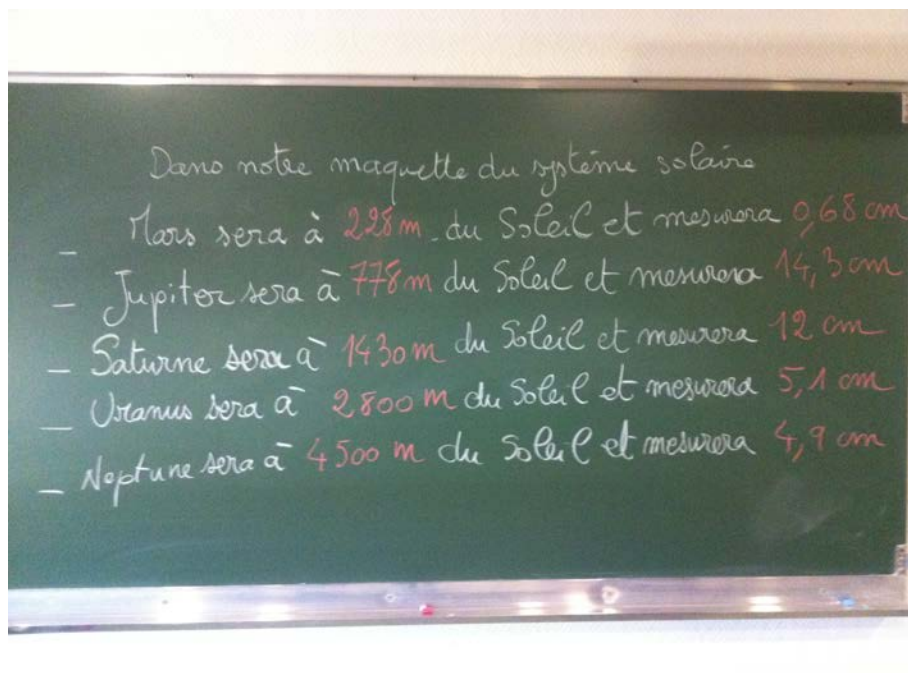 Dans notre maquette du système solaire
_ Mars sera à 228 m du Soleil et mesurera 0,68 cm
_ Jupiter sera à 778 m du Soleil et mesurera 14,3 cm
_ Saturne sera à 1430 m du Soleil et mesurera 12 cm
_ Uranus sera à 2800 m du Soleil et mesurera 5,1 cm
_ Neptune sera à 4500 m du Soleil et mesurera 4,9 cm